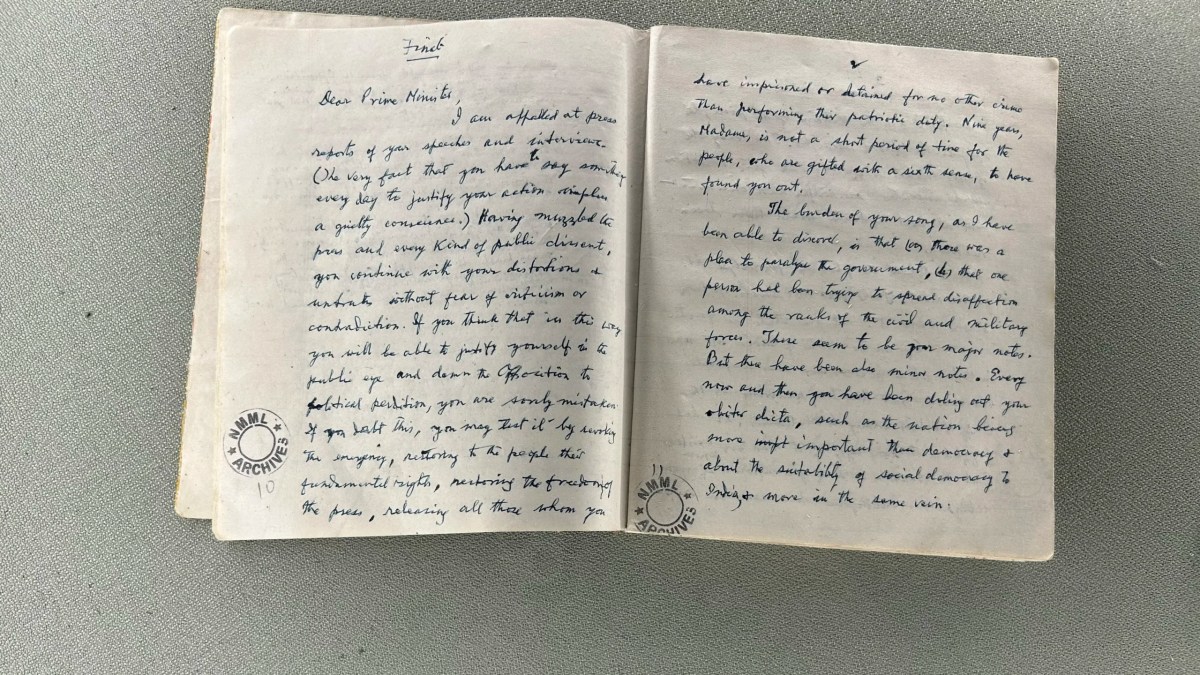 Final
Dear Prime Minister,
I am appalled at press
reports of your speeches and interviews.
(The very fact that you have to say something
every day to justify your action implies
a guilty conscience.) Having muzzled the
press and every kind of public dissent,
you continue with your distortions &
untruths without fear of criticism or
contradiction. If you think that in this way
you will be able to justify yourself in the
public eye and damn the Opposition to
political perdition, you are sorely mistaken.
If you doubt this, you may test it by revoking
the emergency, restoring to the people their
fundamental rights, restoring the freedom of
the press, releasing all those whom you
NMML
ARCHIVES
10
have imprisoned or detained for no other crime
than performing their patriotic duty. Nine years,
Madame, is not a short period of time for the
people, who are gifted with a sixth sense, to have
found you out.
The burden of your song, as I have
been able to discover, is that (a) there was a
plan to paralyse the government, (b) that one
person had been trying to spread disaffection
among the ranks of the civil and military
forces. These seem to be your major notes.
But there have been also minor notes. Every
now and then you have been doling out your
obiter dicta, such as the nation being
more important than democracy &
about the suitability of social democracy to
India, & more in the same vein.
11
NMML
ARCHIVES